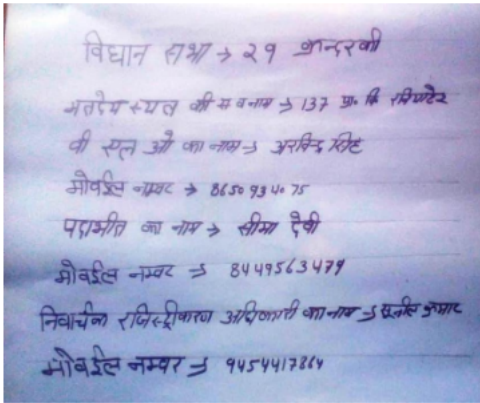 विधान सभा → २९ कुन्दरकी
मतदेय स्थल की सं व नाम → 137 प्रा. वि.
बी एल ओ का नाम → अरविन्द सिंह
मोबाईल नम्बर → 8650934075
पदाभीत का नाम → सीमा देवी
मोबाईल नम्बर → 8449563479
निर्वाचक रजिस्ट्रीकरण अधिकारी का नाम → सुनील कुमार
मोबाईल नम्बर → 9454417864